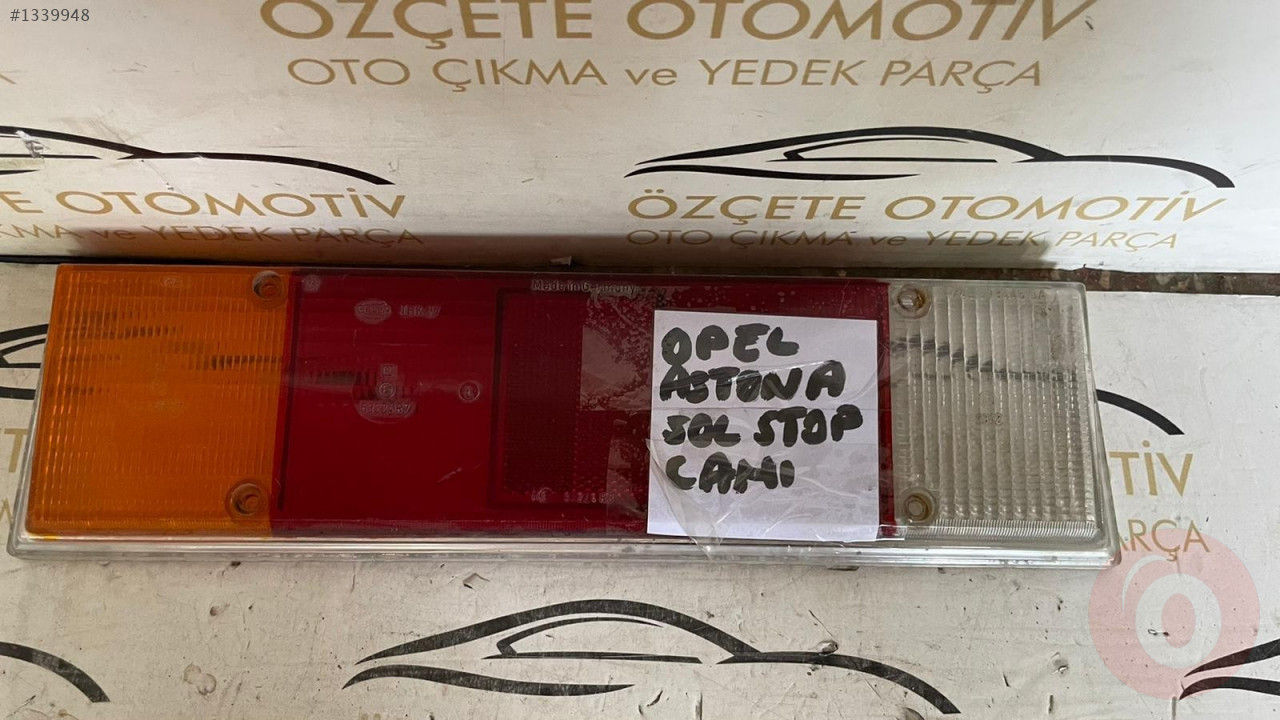 #1339948
ÖZÇETE OTOMOTİV
OTO ÇIKMA ve YEDEK PARÇA
E OTOMOTİV
KMA ve YEDEK PARÇA
ÖZÇETE OTOMOTİV
OTO ÇIKMA ve YEDEK PARÇA
Made in Germany
OPEL
ASTONA
SOL STOP
CAMI
TİV
RÇA